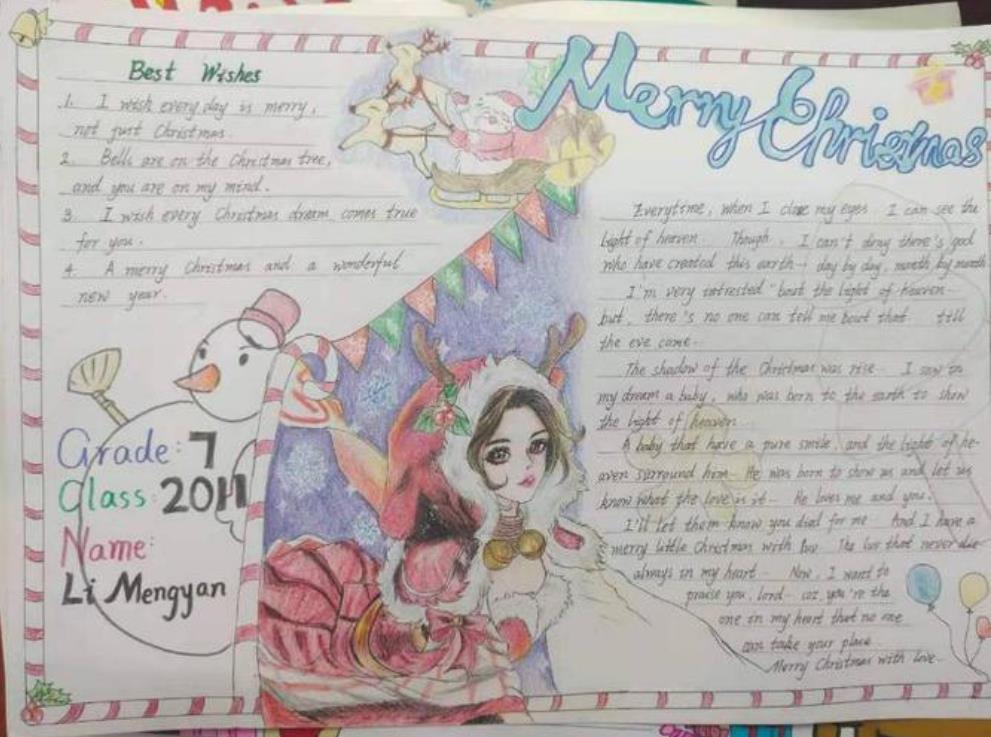 Best Wishes
1. I wish every day is merry,
not just Christmas.
2. Bells are on the Christmas tree,
and you are on my mind.
3. I wish every Christmas dream comes true
for you.
4. A merry Christmas and a wonderful
new year.
Grade: 7
Class: 2011
Name:
Li Mengyan
Merry Christmas
Everytime, when I close my eyes I can see the
light of heaven. Though, I can't deny there's god
who have created this earth day by day, month by month
I'm very intrested 'bout the light of heaven
but, there's no one can tell me bout that till
the eve came
The shadow of the Christmas was rise I saw in
my dream a baby, who was born to the earth to show
the light of heaven
A baby that have a pure smile, and the light of he-
aven surround him He was born to show us and let us
know what the love is it He loves me and you.
I'll let them know you died for me And I have a
merry little Christmas with luv The luv that never die
always in my heart Now, I want to
praise you, lord coz you're the
one in my heart that no one
can take your place
Merry Christmas with love